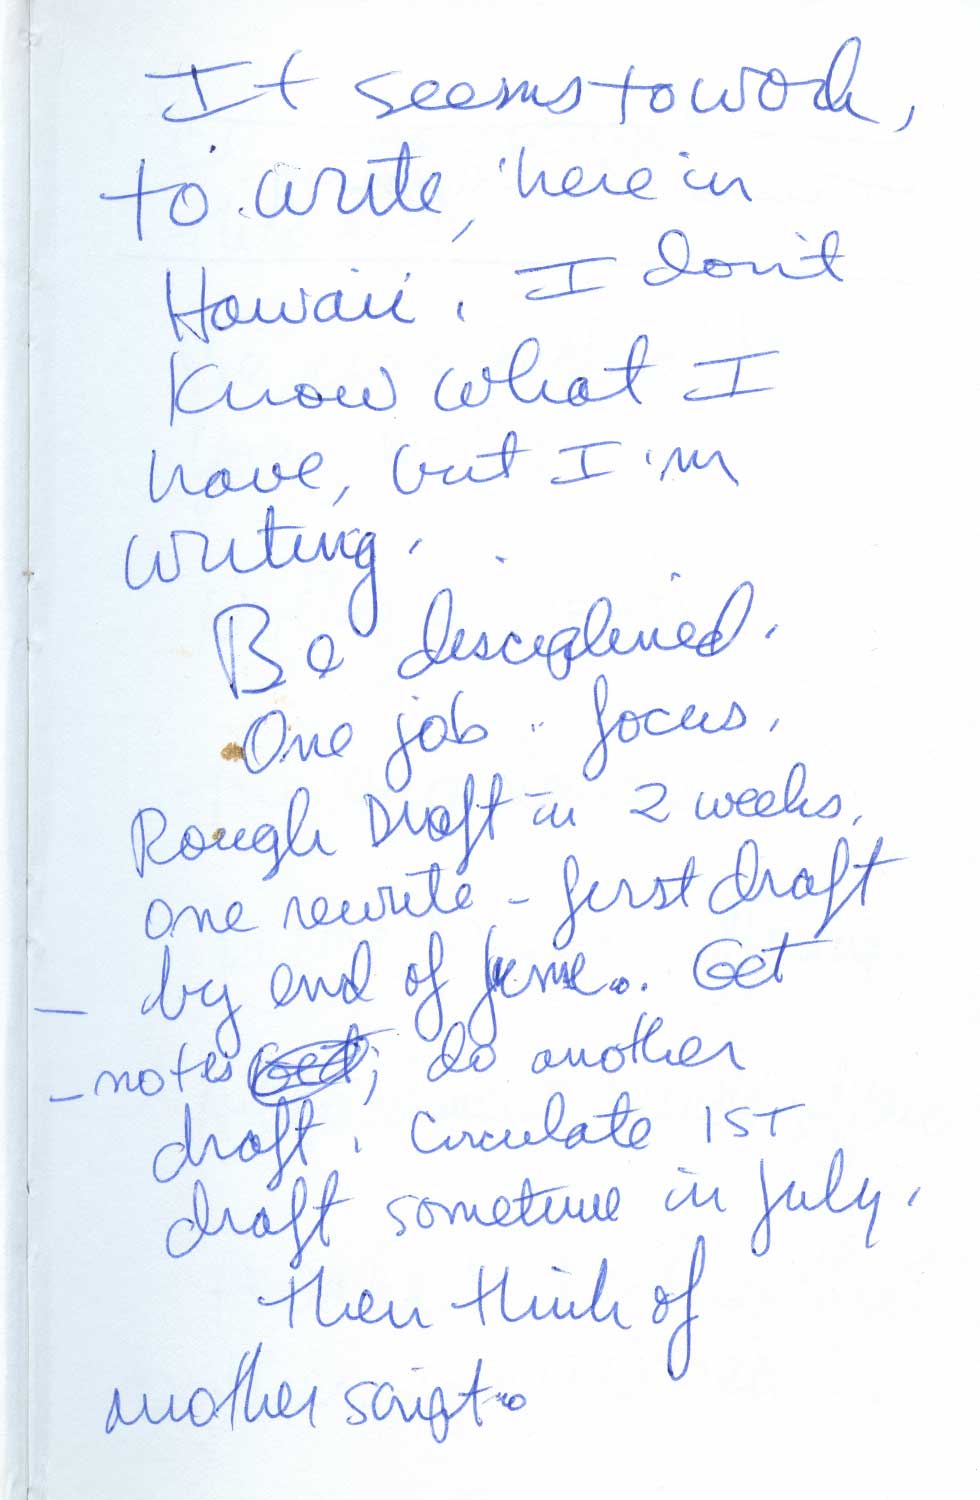 It seems to work,
to write, here in
Hawaii. I don't
know what I
have, but I'm
writing.
Be disciplined.
One job - focus.
Rough Draft in 2 weeks.
one rewrite - first draft
- by end of June. Get
- notes; do another
draft. Circulate 1ST
draft sometime in July.
then think of
another script.